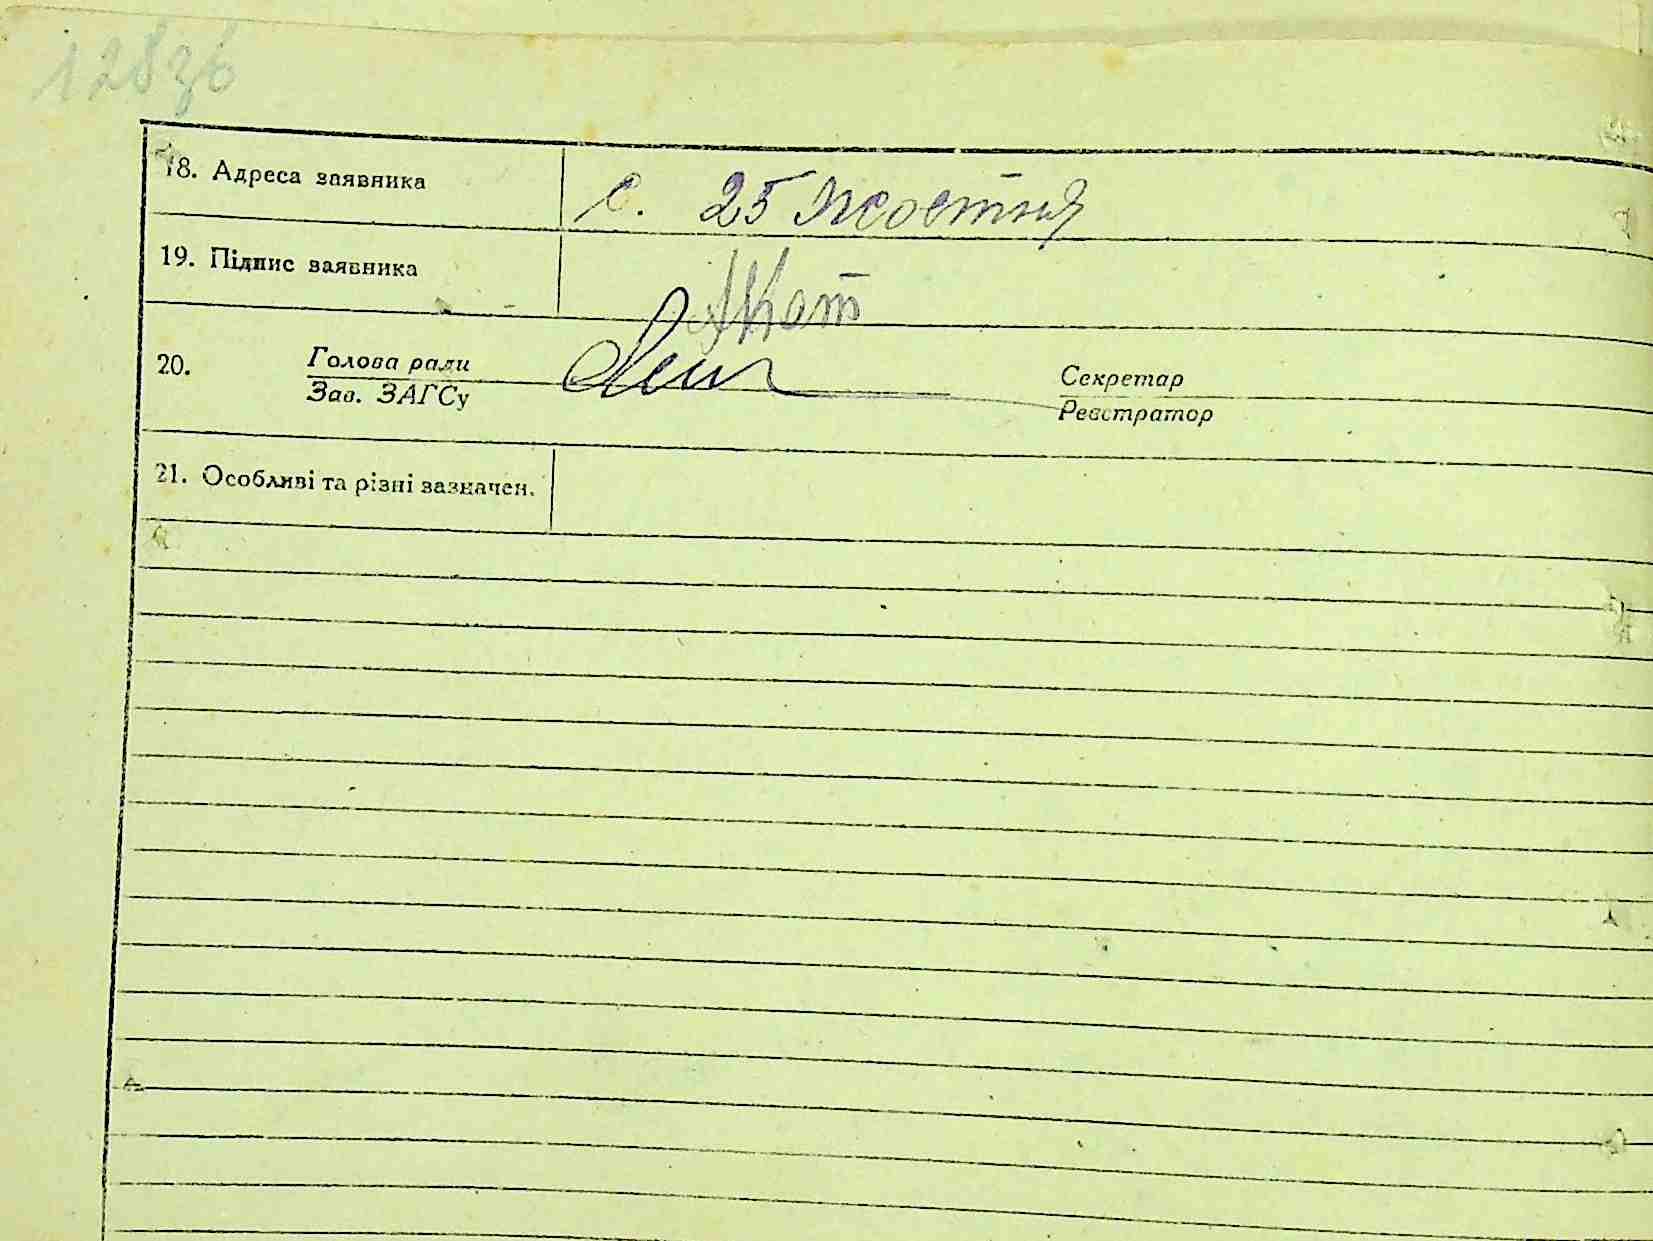 128зв
18. Адреса заявника с. 25 Жовтня
19. Підпис заявника АКот
20. Голова ради Секретар
Зав. ЗАГСу Реєстратор
21. Особливі та різні зазначен.